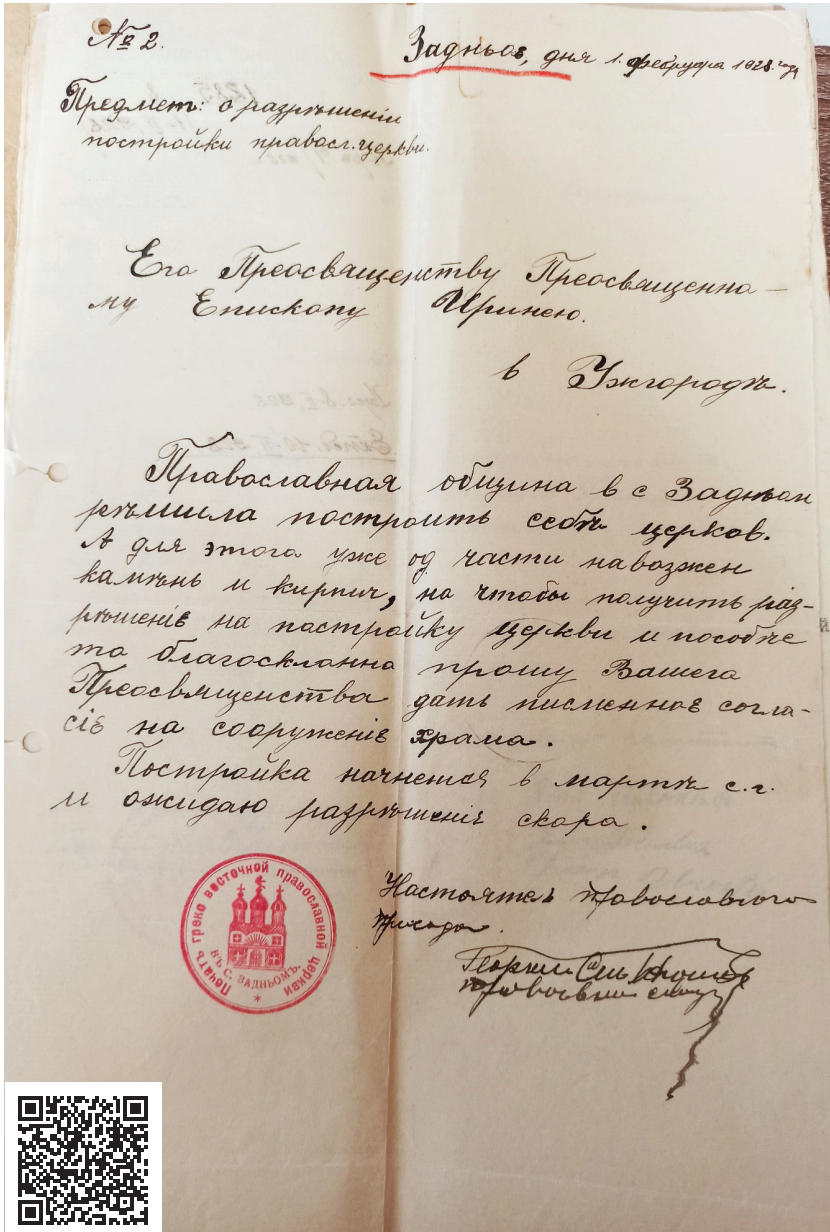 № 2.
Задньое, дня 1. фебруара 1928. года
Предмет: о разрѣшеніи
постройки правосл. церкви.
Его Преосвященству Преосвященно-
му Епископу Иринею.
в Ужгородѣ.
Православная община в с Заднъом
рѣшила построить себѣ церков.
А для этого уже од части навозжен
камѣнь и кирпич, но чтобы получить раз-
рѣшеніе на постройку церкви и пособіе
то благосклонно прошу Вашего
Преосвященства дать писменное согла-
сіе на сооруженіе храма.
Постройка начнется в мартѣ с.г.
и ожидаю разрѣшеніе скоро.
Настоятель православного
прихода.
Георгий
Печать греко восточной православной церкви
въ с. Задньомъ.